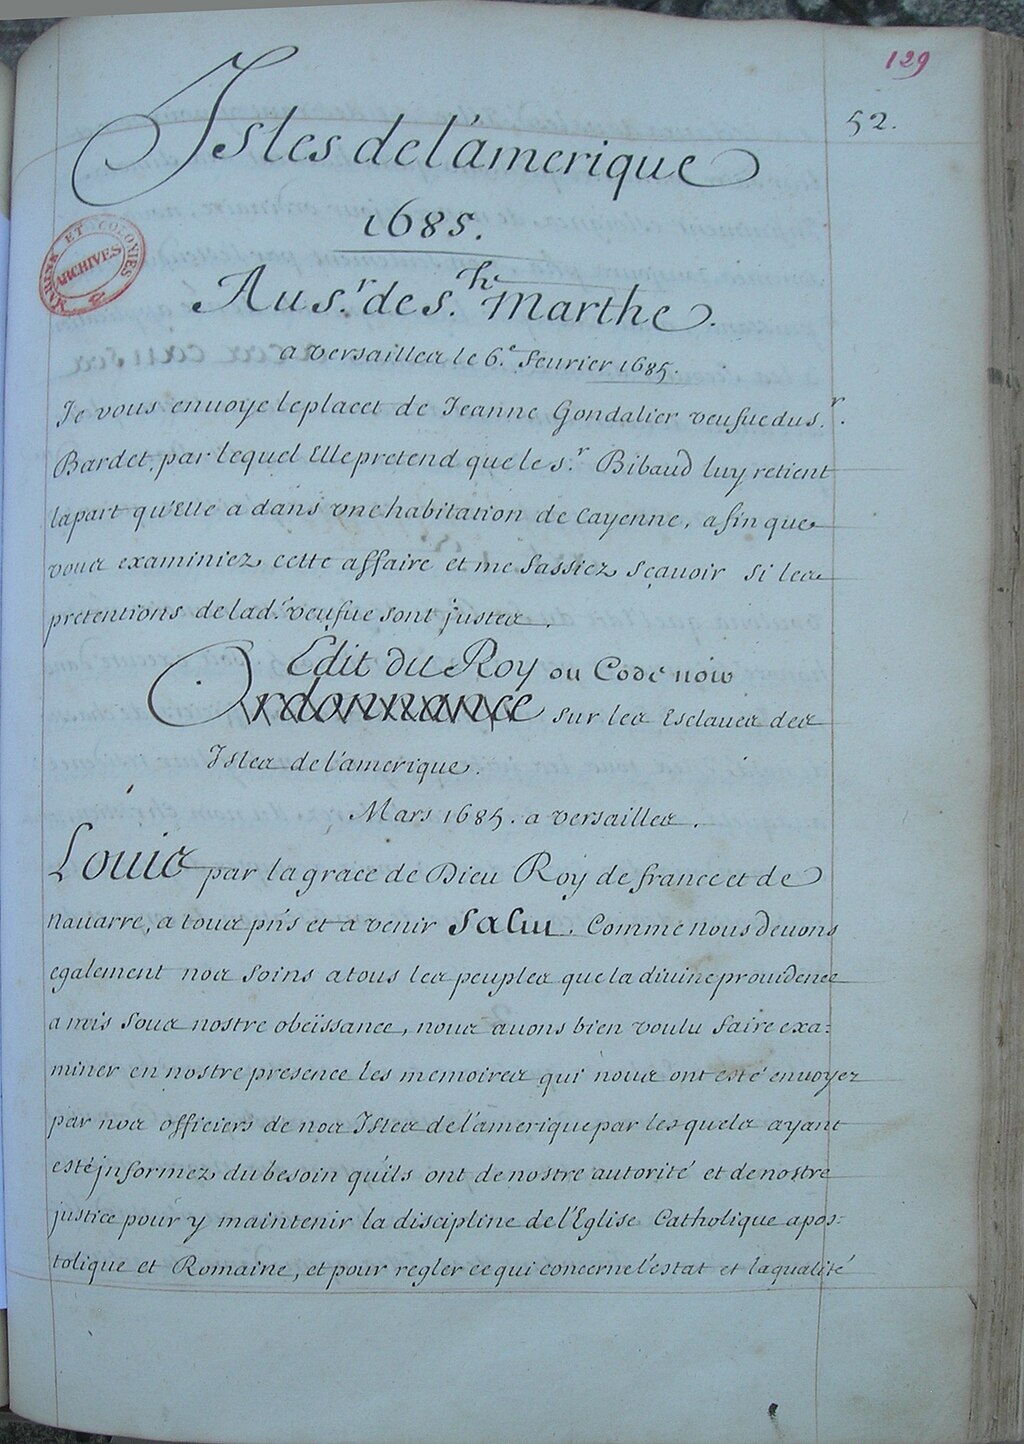 129
52.
Isles de l'amerique
1685.
MARINE ET COLONIES
ARCHIVES
Au s.r de s.te Marthe.
a versailles le 6.e feurier 1685.
Je vous enuoye le placet de Jeanne Gondalier veufue du s.r
Bardet, par lequel Elle pretend que le s.r Bibaud luy retient
la part qu'Elle a dans vne habitation de Cayenne, afin que
vous examiniez cette affaire et me fassiez sçauoir si les
pretentions de lad.e veufue sont justes.
Edit du Roy ou Code noir
Ordonnance sur les Esclaues des
Isles de l'amerique.
Mars 1685. a versailles.
Louis par la grace de Dieu Roy de france et de
nauarre, a tous pñs et a venir Salut. Comme nous deuons
egalement nos soins a tous les peuples que la diuine prouidence
a mis sous nostre obeïssance, nous auons bien voulu faire exa:
miner en nostre presence les memoires qui nous ont esté enuoyez
par nos officiers de nos Isles de l'amerique par les quels ayant
esté informez du besoin qu'ils ont de nostre autorité et de nostre
justice pour y maintenir la discipline de l'Eglise Catholique apos:
tolique et Romaine, et pour regler ce qui concerne l'estat et la qualité